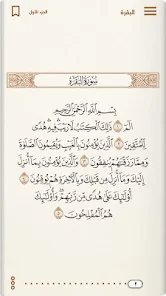 البقرة
الجزء الأول
سُورَةُ البَقَرَةِ
بِسْمِ اللَّهِ الرَّحْمَٰنِ الرَّحِيمِ
الٓمٓ ١ ذَٰلِكَ الْكِتَٰبُ لَا رَيْبَ ۛ فِيهِ ۛ هُدًى
لِّلْمُتَّقِينَ ٢ الَّذِينَ يُؤْمِنُونَ بِالْغَيْبِ وَيُقِيمُونَ الصَّلَوٰةَ
وَمِمَّا رَزَقْنَٰهُمْ يُنفِقُونَ ٣ وَالَّذِينَ يُؤْمِنُونَ بِمَآ أُنزِلَ
إِلَيْكَ وَمَآ أُنزِلَ مِن قَبْلِكَ وَبِالْءَاخِرَةِ هُمْ يُوقِنُونَ ٤
أُولَٰٓئِكَ عَلَىٰ هُدًى مِّن رَّبِّهِمْ ۖ وَأُولَٰٓئِكَ
هُمُ الْمُفْلِحُونَ ٥
٢